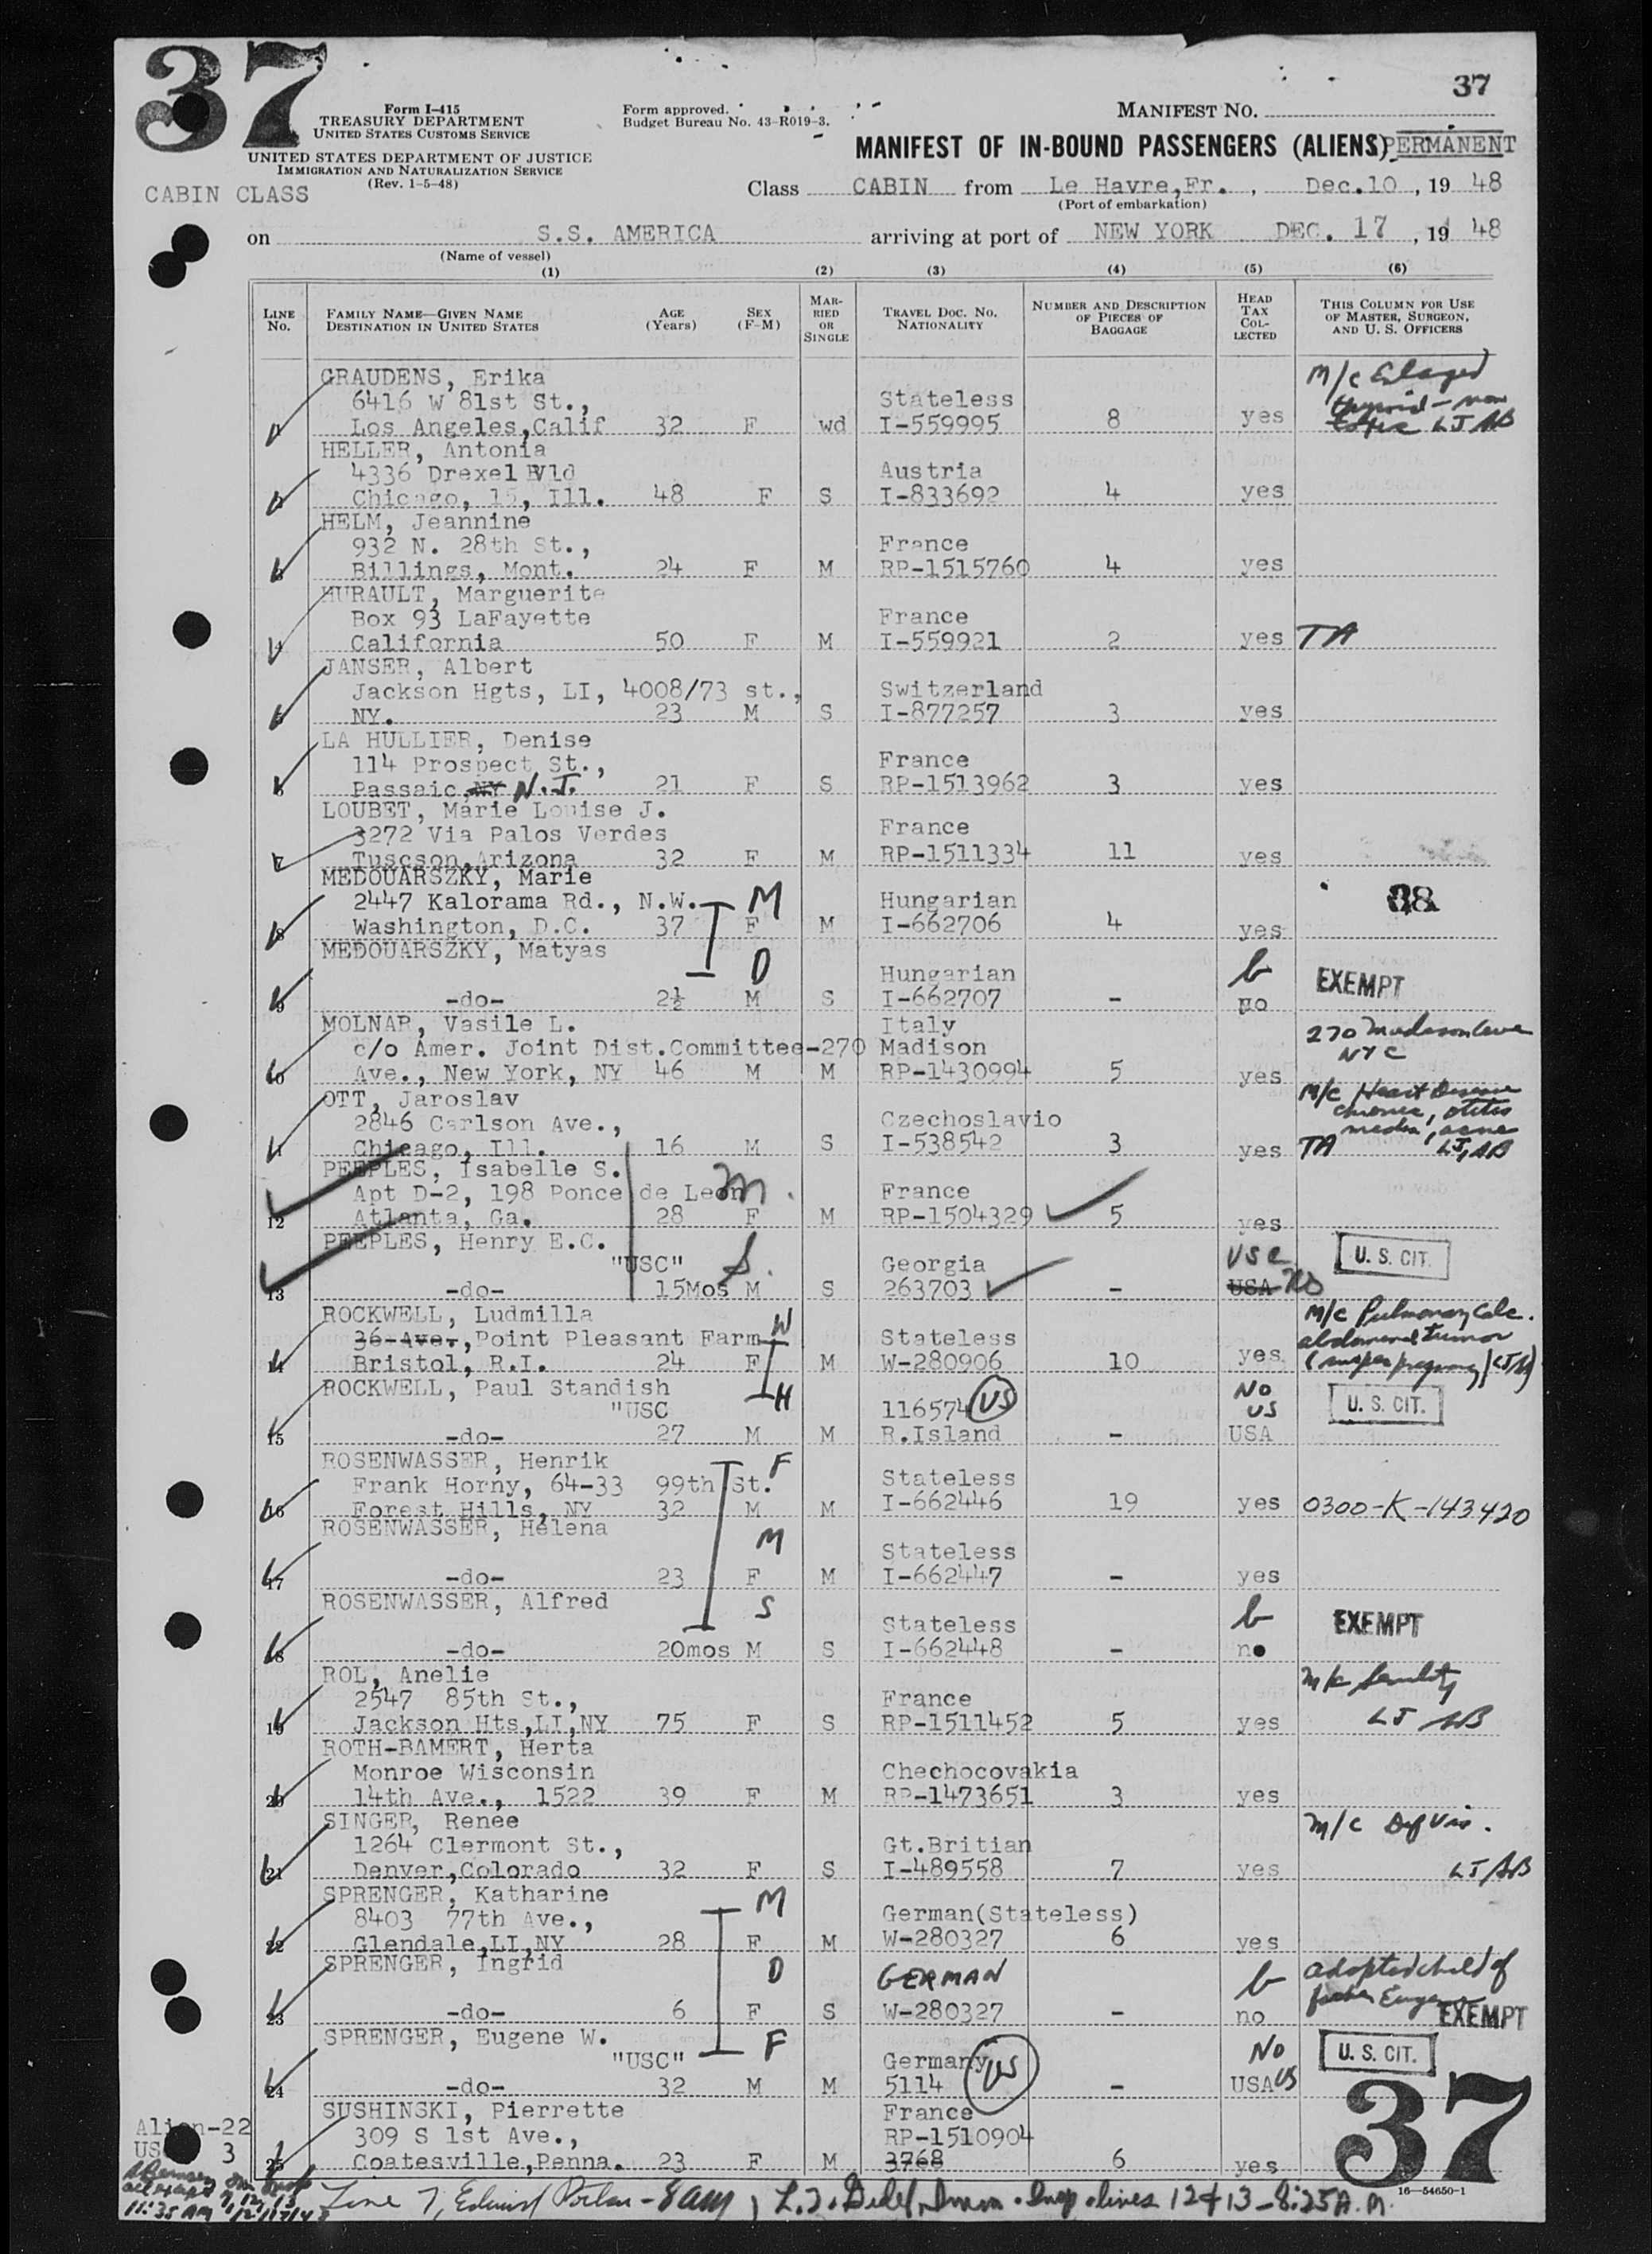 37
37
Form I-415
TREASURY DEPARTMENT
UNITED STATES CUSTOMS SERVICE
UNITED STATES DEPARTMENT OF JUSTICE
IMMIGRATION AND NATURALIZATION SERVICE
(Rev. 1-5-48)
Form approved.
Budget Bureau No. 43-R019-3.
MANIFEST NO.
MANIFEST OF IN-BOUND PASSENGERS (ALIENS) PERMANENT
CABIN CLASS
Class CABIN from Le Havre,Fr. , Dec.10 , 19 48
(Port of embarkation)
on S.S. AMERICA arriving at port of NEW YORK DEC. 17 , 19 48
(Name of vessel)
(1) (2) (3) (4) (5) (6)
LINE No. FAMILY NAME—GIVEN NAME DESTINATION IN UNITED STATES AGE (Years) SEX (F-M) MARRIED OR SINGLE TRAVEL DOC. NO. NATIONALITY NUMBER AND DESCRIPTION OF PIECES OF BAGGAGE HEAD TAX COLLECTED THIS COLUMN FOR USE OF MASTER, SURGEON, AND U. S. OFFICERS
GRAUDENS, Erika M/c Enlarged
6416 W 81st St., Stateless thyroid - non
1 Los Angeles,Calif 32 F wd I-559995 8 yes toxic LJ AB
HELLER, Antonia
4336 Drexel Bvld Austria
2 Chicago, 15, Ill. 48 F S I-833692 4 yes
HELM, Jeannine
932 N. 28th St., France
3 Billings, Mont. 24 F M RP-1515760 4 yes
HURAULT, Marguerite
Box 93 LaFayette France
4 California 50 F M I-559921 2 yes TA
JANSER, Albert
Jackson Hgts, LI, 4008/73 st., Switzerland
5 NY. 23 M S I-877257 3 yes
LA HULLIER, Denise
114 Prospect St., France
6 Passaic,NY N.J. 21 F S RP-1513962 3 yes
LOUBET, Marie Louise J.
3272 Via Palos Verdes France
7 Tuscson,Arizona 32 F M RP-1511334 11 yes
MEDOUARSZKY, Marie
2447 Kalorama Rd., N.W. M Hungarian
8 Washington, D.C. 37 F M I-662706 4 yes
MEDOUARSZKY, Matyas
D Hungarian b EXEMPT
9 -do- 2½ M S I-662707 - no
MOLNAR, Vasile L. Italy 270 Madison Ave
c/o Amer. Joint Dist.Committee-270 Madison NYC
10 Ave., New York, NY 46 M M RP-1430994 5 yes
OTT, Jaroslav M/c Heart Disease
2846 Carlson Ave., Czechoslavio chronic, otitis media, acne
11 Chicago, Ill. 16 M S I-538542 3 yes TA LJ, AB
PEEPLES, Isabelle S.
Apt D-2, 198 Ponce de Leon M. France
12 Atlanta, Ga. 28 F M RP-1504329 5 yes
PEEPLES, Henry E.C.
"USC" S. Georgia USC U. S. CIT.
13 -do- 15Mos M S 263703 - USA no
ROCKWELL, Ludmilla M/c Pulmonary Calc.
36 Aver,Point Pleasant Farm W Stateless abdominal tumor
14 Bristol, R.I. 24 F M W-280906 10 yes pregnancy
ROCKWELL, Paul Standish H No
"USC 116574 US US U. S. CIT.
15 -do- 27 M M R.Island - USA
ROSENWASSER, Henrik F
Frank Horny, 64-33 99th St. Stateless
16 Forest Hills, NY 32 M M I-662446 19 yes 0300-K-143420
ROSENWASSER, Helena
M Stateless
17 -do- 23 F M I-662447 - yes
ROSENWASSER, Alfred
S Stateless b EXEMPT
18 -do- 20mos M S I-662448 - no
ROL, Anelie M/c Senility
2547 85th St., France
19 Jackson Hts,LI,NY 75 F S RP-1511452 5 yes LJ AB
ROTH-BAMERT, Herta
Monroe Wisconsin Chechocovakia
20 14th Ave., 1522 39 F M RP-1473651 3 yes
SINGER, Renee M/c Def Vis.
1264 Clermont St., Gt.Britian
21 Denver,Colorado 32 F S I-489558 7 yes LJ/AB
SPRENGER, Katharine M
8403 77th Ave., German(Stateless)
22 Glendale,LI,NY 28 F M W-280327 6 yes
SPRENGER, Ingrid D GERMAN b adopted child of
23 -do- 6 F S W-280327 - no father Eugene EXEMPT
SPRENGER, Eugene W. F No
"USC" Germany US U. S. CIT.
24 -do- 32 M M 5114 - USA US
SUSHINSKI, Pierrette France
309 S 1st Ave., RP-1510904
25 Coatesville,Penna. 23 F M 3768 6 yes
37
Alien-22
US 3
11:35 AM
Line 7, Edward - 8 am, lines 12 & 13 - 8:25 A.M.
16—54650-1